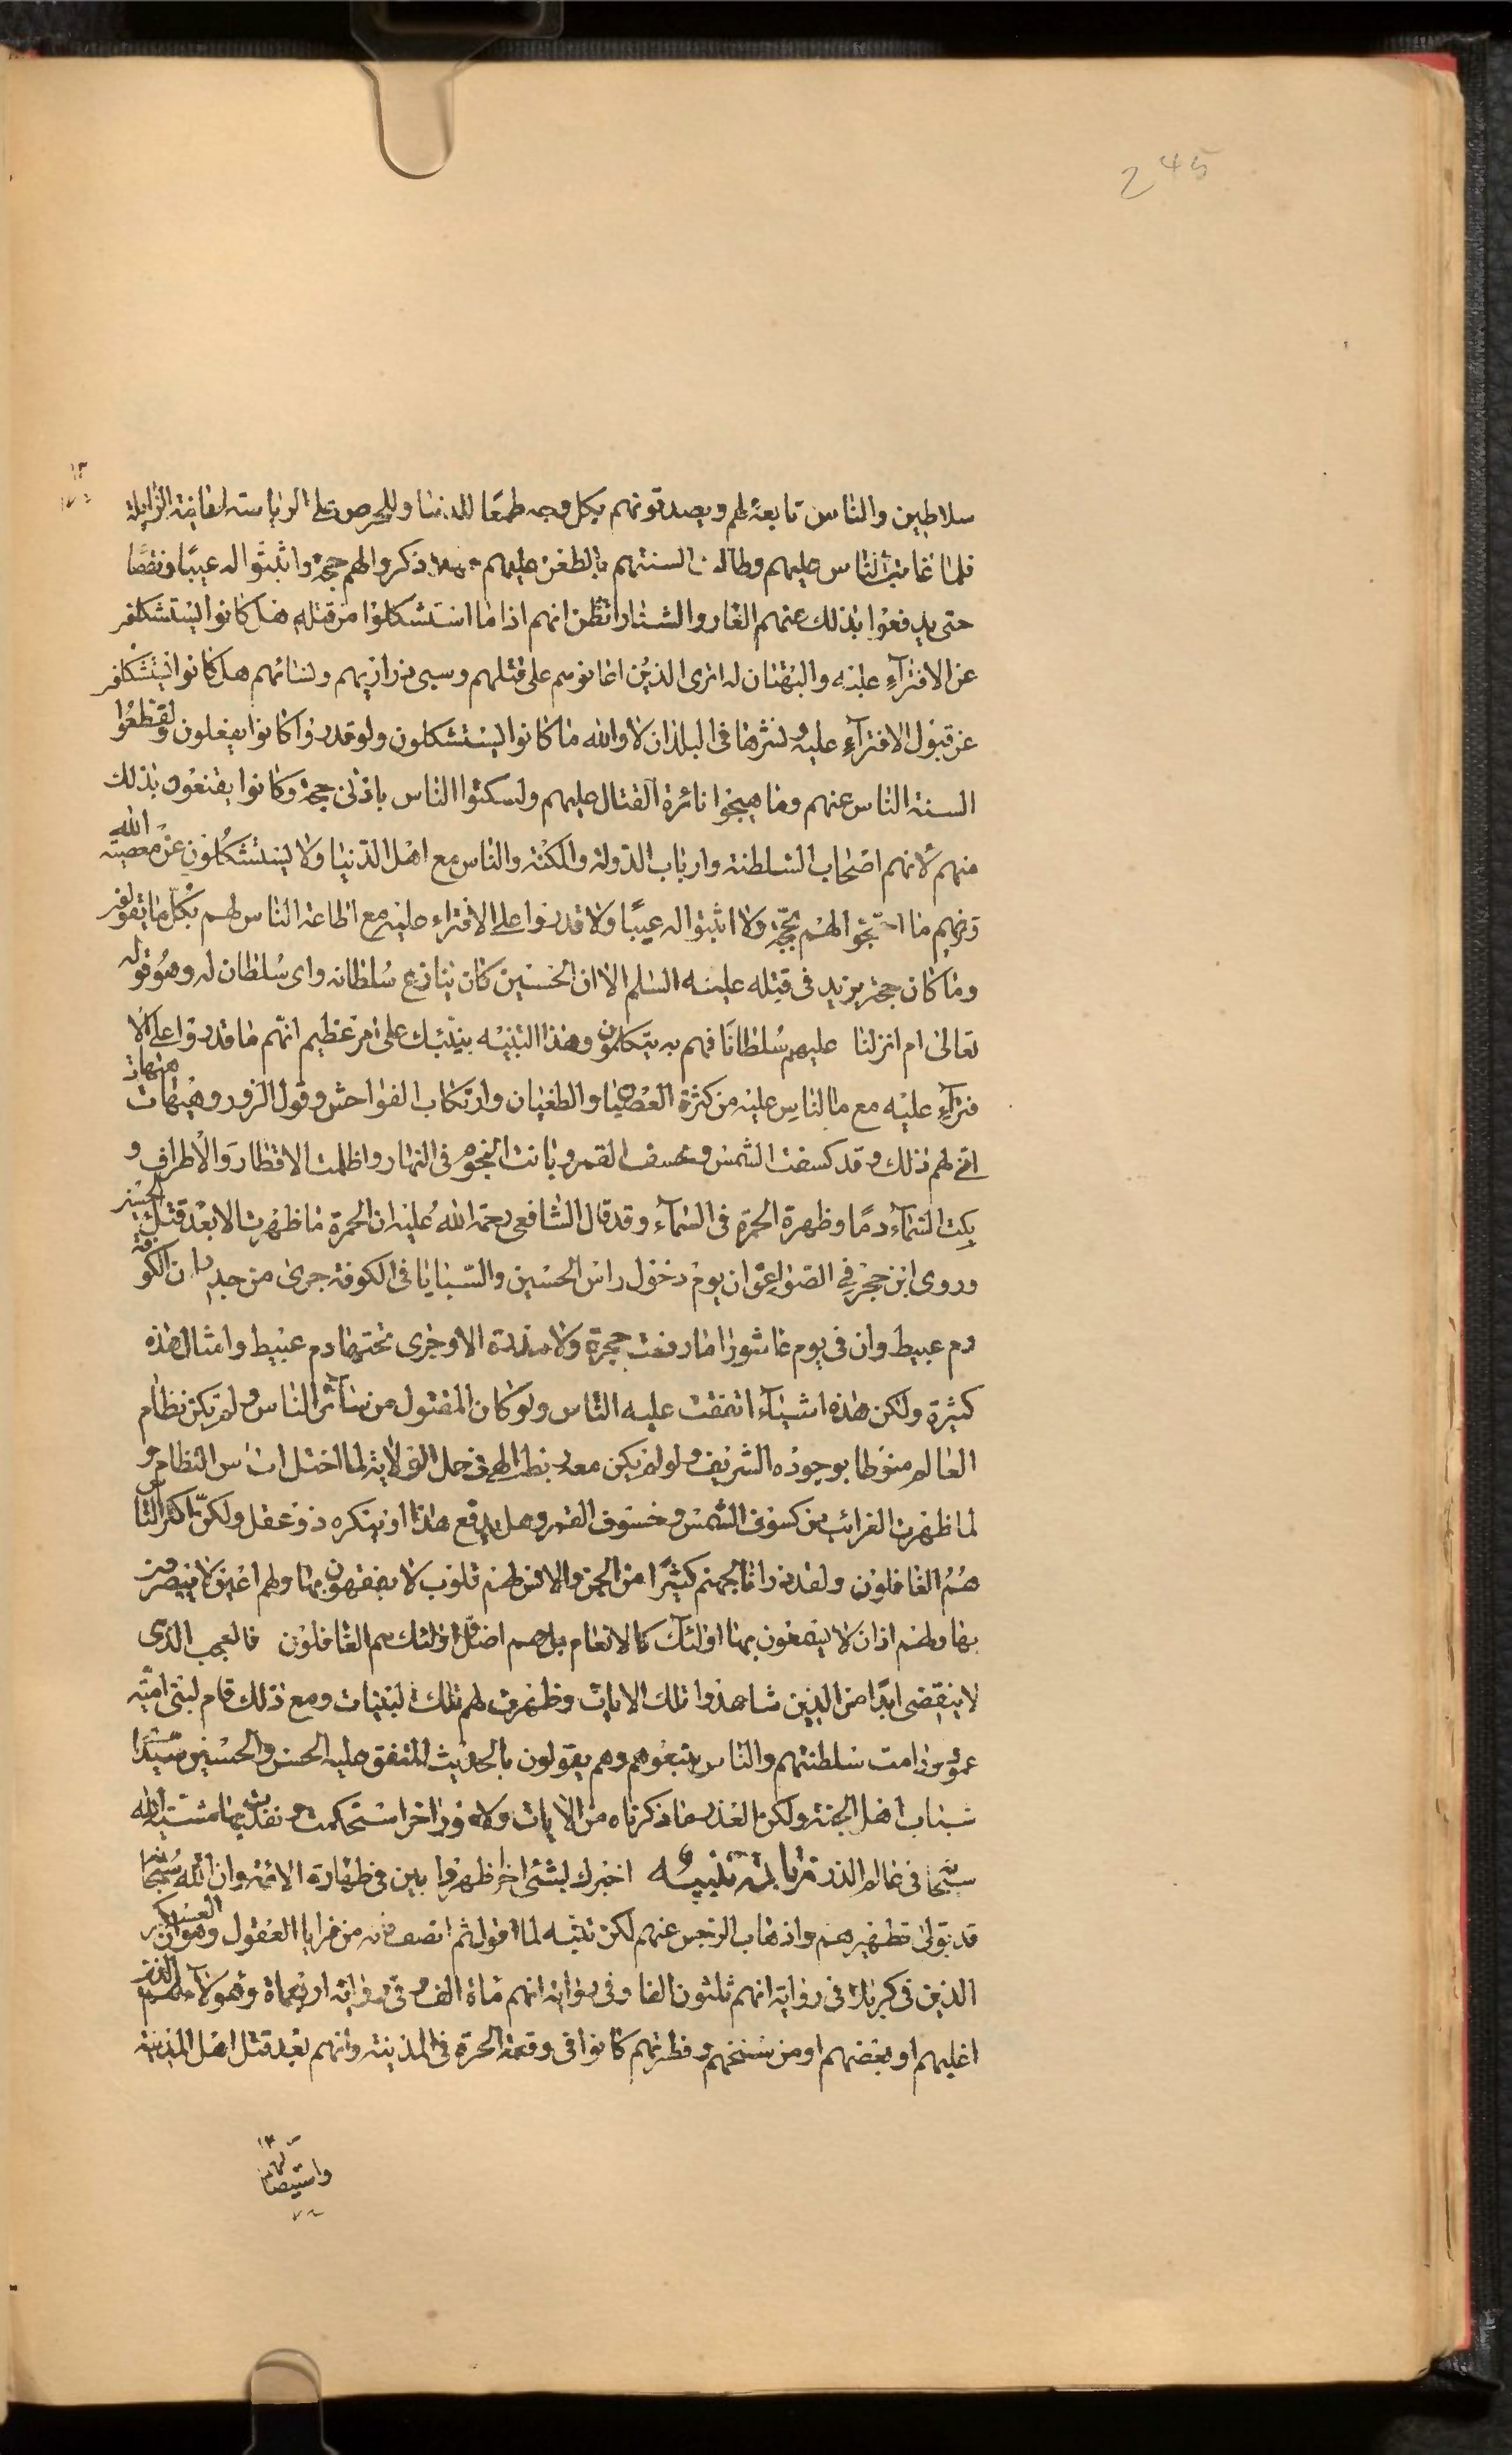 245
سلاطين والناس تابعة لهم ويصدقونهم بكل وجه طمعًا للدنيا وللحرص على الرياسة الفانية الزايلة
فلما عابت الناس عليهم وطالت السنتهم بالطعن عليهم ذكروا لهم حجة واثبتوا له عيبًا ونقصًا
حتى يدفعوا بذلك عنهم العار والشنار اتظن انهم اذا ما استشكلوا من قتله هل كانوا يستشكلون
عن الافتراء عليه والبهتان له اترى الذين اعانوهم على قتلهم وسبى ذراريهم ونسائهم هل كانوا يستشكلون
عن قبول الافتراء عليه ونشرها فى البلدان لا والله ما كانوا يستشكلون ولو قدروا كانوا يفعلون ولقطعوا
السنة الناس عنهم وما هيجوا نائرة القتال عليهم ولسكتوا الناس بادنى حجة وكانوا يقنعون بذلك
منهم لانهم اصحاب السلطنة وارباب الدولة والمكنة والناس مع اهل الدنيا ولا يستشكلون عن معصية الله
وتريهم ما احتجوا لهم بحجة ولا اثبتوا له عيبًا ولا قدروا على الافتراء عليه مع اطاعة الناس لهم بكل ما يقولون
وما كان حجة يزيد فى قتله عليه السلم الا ان الحسين كان ينازع سلطانه واى سلطان له وهو قوله
تعالى ام انزلنا عليهم سلطانًا فهم به يتكلمون وهذا التنبيه ينبئك على امر عظيم انهم ما قدروا على الا
فتراء عليه مع ما للناس عليه من كثرة العصيان والطغيان وارتكاب الفواحش وقول الزور وهيهات هيهات
انى لهم ذلك وقد كسفت الشمس وخسف القمر وبانت النجوم فى النهار واظلمت الاقطار والاطراف و
بكت السماء دمًا وظهرة الحمرة فى السماء وقد قال الشافعى رحمة الله عليه ان الحمرة ما ظهرت الا بعد قتل الحسين
وروى ابن حجر في الصواعق ان يوم دخول راس الحسين والسبايا فى الكوفة جرى من جدران الكوفة
دم عبيط وان فى يوم عاشورا ما رفعت حجرة ولا مدرة الا وجرى تحتها دم عبيط وامثال هذه
كثيرة ولكن هذه اشياء اتفقت عليه الناس ولو كان المقتول من سائر الناس ولم يكن نظام
العالم منوطا بوجوده الشريف ولو لم يكن معه لما اختل اساس النظام و
لما ظهرت الغرائب من كسوف الشمس وخسوف القمر وهل يدفع هذا او ينكره ذو عقل ولكن اكثر الناس
هم الغافلون ولقد ذرانا لجهنم كثيرًا من الجن والانس لهم قلوب لا يفقهون بها ولهم اعين لا يبصرون
بها ولهم اذان لا يسمعون بها اولئك كالانعام بل هم اضل اولئك هم الغافلون فالعجب الذى
لا ينقضى ابدًا من الذين شاهدوا تلك الايات وظهرت لهم تلك البينات ومع ذلك قام لبنى امية
عمود ودامت سلطنتهم والناس يتبعوهم وهم يقولون بالحديث المتفق عليه الحسن والحسين سيدا
شباب اهل الجنة ولكن العذر ما ذكرناه من الايات ولامور اخر استحكمت ونفدت بها مشيت الله
سبحانه فى عالم الذر تنبيه اخبرك بشئ اخر ظهر وا بين فى طهارة الائمة وان الله سبحانه
قد تولى تطهيرهم واذهاب الرجس عنهم لكن تنبه لما اقول ثم انصف من مرايا العقول وهو ان العسكر
الذين فى كربلا فى رواية انهم ثلثون الفا وفى رواية انهم ماة الف وفى رواية اربعماة وهؤلاء هم الذين
اغلبهم او بعضهم او من سنخهم وفطرتهم كانوا فى وقعة الحرة فى المدينة وانهم بعد قتل اهل المدينة